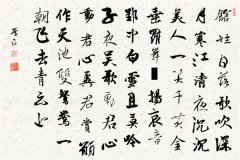 館娃日落歌吹
月寒江清夜沉沉
美人一笑千黄金
垂羅舞揚哀音
郢中白雪且莫吟
子夜吳歌動君心
動君心冀君賞願
作天池雙鴛鴦一
朝飛去青雲上